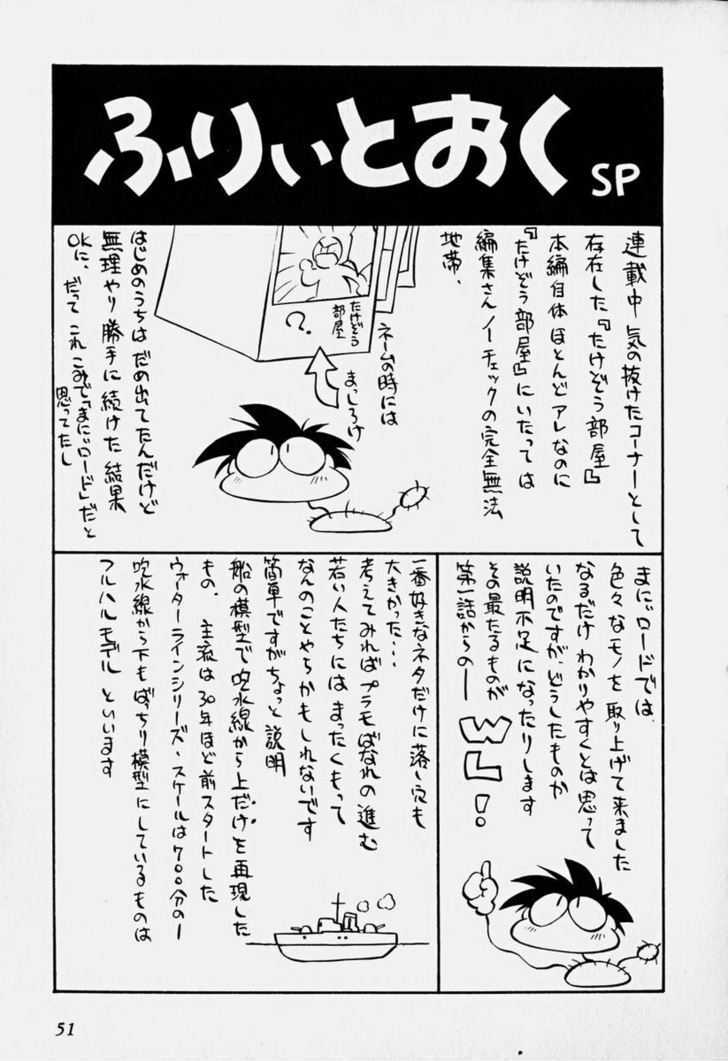 ふりぃとおく SP
連載中 気の抜けたコーナーとして
存在した『たけぞう部屋』
本編自体 ほとんどアレなのに
『たけぞう部屋』にいたっては
編集さん ノーチェックの完全無法
地帯、
ネームの時には
まっしろけ
たけぞう
部屋
?
はじめのうちは だめ出てたんだけど
無理やり勝手に続けた結果
OKに、
だって これ こみで「まにぃロード」だと
思ってたし
まにぃロードでは
色々なモノを取り上げて来ました
なるだけ わかりやすくとは思って
いたのですが、どうしたものか
説明不足になったりします
その最たるものが
第一話からの―
WL!
一番好きなネタだけに落し穴も
大きかった・・・
考えてみれば プラモばなれの進む
若い人たちには まったくもって
なんのことやらかもしれないです
簡単ですがちょっと説明
船の模型で吹水線から上だけを再現した
もの、 主流は30年ほど前スタートした
ウォーターラインシリーズ・スケールは700分の一
吹水線から下もばっちり模型にしているものは
フルハルモデル といいます
51